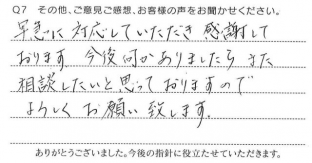 Q7 その他、ご意見ご感想、お客様の声をお聞かせください。
早急に対応していただき感謝して
おります 今後何かありましたらまた
相談したいと思っておりますので
よろしくお願い致します.
ありがとうございました。今後の指針に役立たせていただきます。